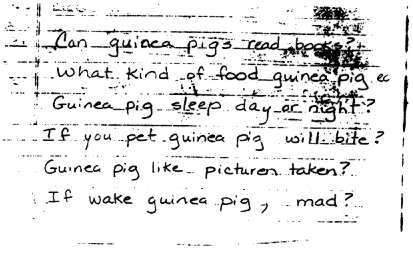 Can guinea pigs read books?
What kind of food guinea pig ea
Guinea pig sleep day or night?
If you pet guinea pig will bite?
Guinea pig like picturen taken?
If wake guinea pig, mad?